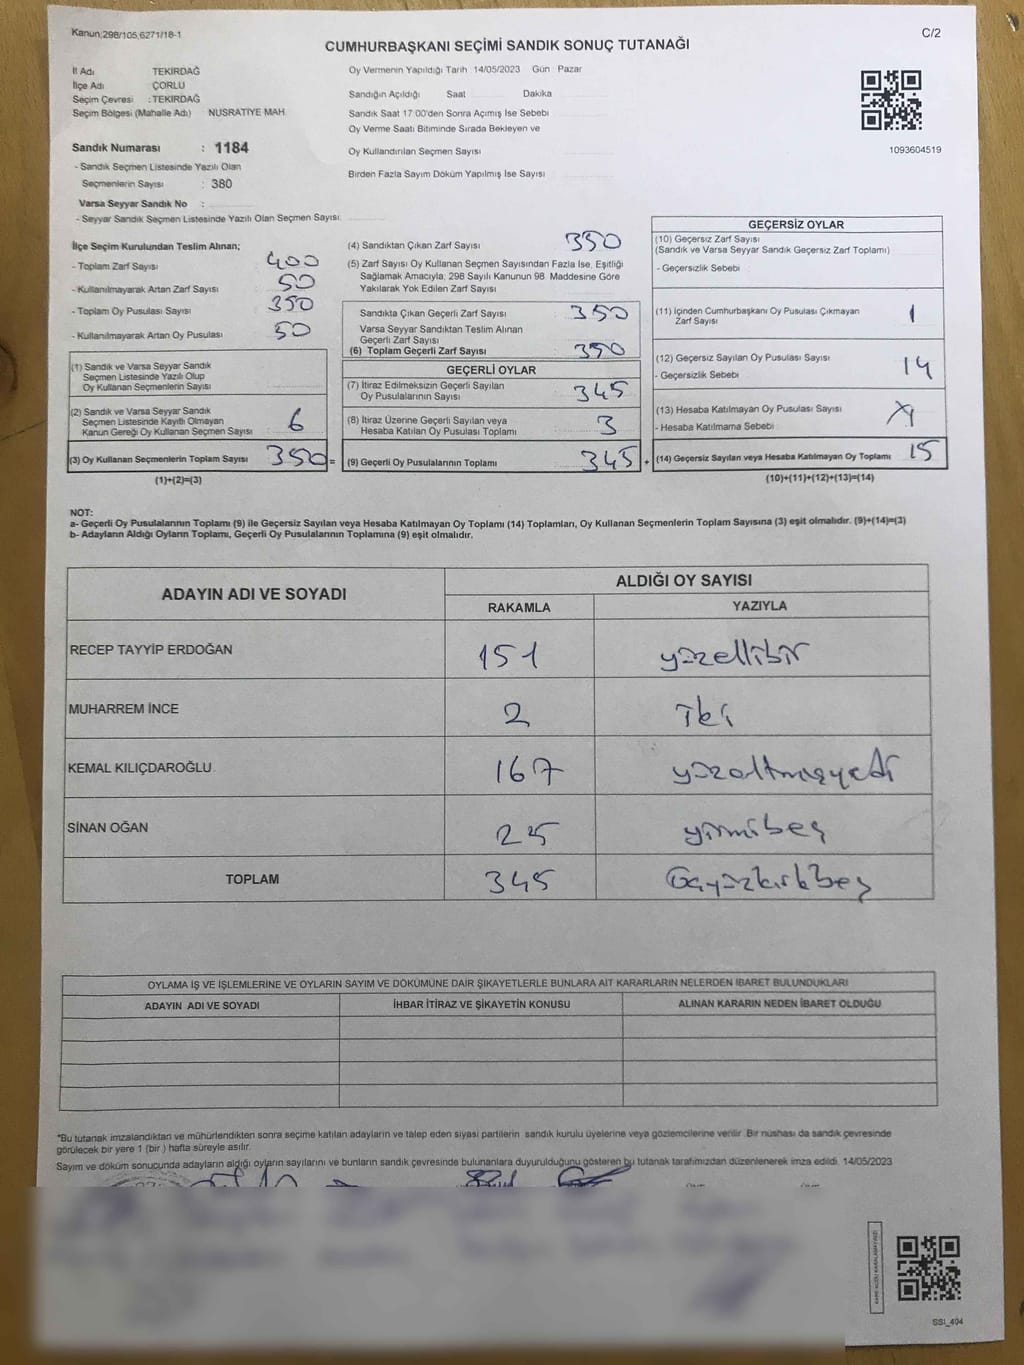 Kanun;298/105,6271/18-1
C/2
CUMHURBAŞKANI SEÇİMİ SANDIK SONUÇ TUTANAĞI
İl Adı TEKİRDAĞ
İlçe Adı ÇORLU
Seçim Çevresi : TEKİRDAĞ
Seçim Bölgesi (Mahalle Adı) NUSRATİYE MAH.
Sandık Numarası : 1184
- Sandık Seçmen Listesinde Yazılı Olan
Seçmenlerin Sayısı : 380
Varsa Seyyar Sandık No :
- Seyyar Sandık Seçmen Listesinde Yazılı Olan Seçmen Sayısı
Oy Vermenin Yapıldığı Tarih 14/05/2023 Gün Pazar
Sandığın Açıldığı Saat Dakika
Sandık Saat 17:00'den Sonra Açımış İse Sebebi
Oy Verme Saati Bitiminde Sırada Bekleyen ve
Oy Kullandırılan Seçmen Sayısı
Birden Fazla Sayım Döküm Yapılmış İse Sayısı
1093604519
İlçe Seçim Kurulundan Teslim Alınan;
- Toplam Zarf Sayısı 400
- Kullanılmayarak Artan Zarf Sayısı 50
- Toplam Oy Pusulası Sayısı 350
- Kullanılmayarak Artan Oy Pusulası 50
(1) Sandık ve Varsa Seyyar Sandık
Seçmen Listesinde Yazılı Olup
Oy Kullanan Seçmenlerin Sayısı
(2) Sandık ve Varsa Seyyar Sandık
Seçmen Listesinde Kayıtlı Olmayan
Kanun Gereği Oy Kullanan Seçmen Sayısı 6
(3) Oy Kullanan Seçmenlerin Toplam Sayısı 350 =
(1)+(2)=(3)
(4) Sandıktan Çıkan Zarf Sayısı 350
(5) Zarf Sayısı Oy Kullanan Seçmen Sayısından Fazla İse, Eşitliği
Sağlamak Amacıyla; 298 Sayılı Kanunun 98. Maddesine Göre
Yakılarak Yok Edilen Zarf Sayısı
Sandıkta Çıkan Geçerli Zarf Sayısı 350
Varsa Seyyar Sandıktan Teslim Alınan
Geçerli Zarf Sayısı
(6) Toplam Geçerli Zarf Sayısı 350
GEÇERLİ OYLAR
(7) İtiraz Edilmeksizin Geçerli Sayılan
Oy Pusulalarının Sayısı 345
(8) İtiraz Üzerine Geçerli Sayılan veya
Hesaba Katılan Oy Pusulası Toplamı 3
(9) Geçerli Oy Pusulalarının Toplamı 345 +
GEÇERSİZ OYLAR
(10) Geçersiz Zarf Sayısı
(Sandık ve Varsa Seyyar Sandık Geçersiz Zarf Toplamı)
- Geçersizlik Sebebi
(11) İçinden Cumhurbaşkanı Oy Pusulası Çıkmayan
Zarf Sayısı 1
(12) Geçersiz Sayılan Oy Pusulası Sayısı 14
- Geçersizlik Sebebi
(13) Hesaba Katılmayan Oy Pusulası Sayısı
- Hesaba Katılmama Sebebi
(14) Geçersiz Sayılan veya Hesaba Katılmayan Oy Toplamı 15
(10)+(11)+(12)+(13)=(14)
NOT:
a- Geçerli Oy Pusulalarının Toplamı (9) ile Geçersiz Sayılan veya Hesaba Katılmayan Oy Toplamı (14) Toplamları, Oy Kullanan Seçmenlerin Toplam Sayısına (3) eşit olmalıdır. (9)+(14)=(3)
b- Adayların Aldığı Oyların Toplamı, Geçerli Oy Pusulalarının Toplamına (9) eşit olmalıdır.
ADAYIN ADI VE SOYADI ALDIĞI OY SAYISI
RAKAMLA YAZIYLA
RECEP TAYYİP ERDOĞAN 151 yüzellibir
MUHARREM İNCE 2 İki
KEMAL KILIÇDAROĞLU 167 yüzaltmışyedi
SİNAN OĞAN 25 yirmibeş
TOPLAM 345 üçyüzkırkbeş
OYLAMA İŞ VE İŞLEMLERİNE VE OYLARIN SAYIM VE DÖKÜMÜNE DAİR ŞİKAYETLERLE BUNLARA AİT KARARLARIN NELERDEN İBARET BULUNDUKLARI
ADAYIN ADI VE SOYADI İHBAR İTİRAZ VE ŞİKAYETİN KONUSU ALINAN KARARIN NEDEN İBARET OLDUĞU
*Bu tutanak imzalandıktan ve mühürlendikten sonra seçime katılan adayların ve talep eden siyasi partilerin sandık kurulu üyelerine veya gözlemcilerine verilir. Bir nüshası da sandık çevresinde
görülecek bir yere 1 (bir) hafta süreyle asılır.
Sayım ve döküm sonucunda adayların aldığı oyların sayılarını ve bunların sandık çevresinde bulunanlara duyurulduğunu gösteren bu tutanak tarafımızdan düzenlenerek imza edildi. 14/05/2023
SSİ_494